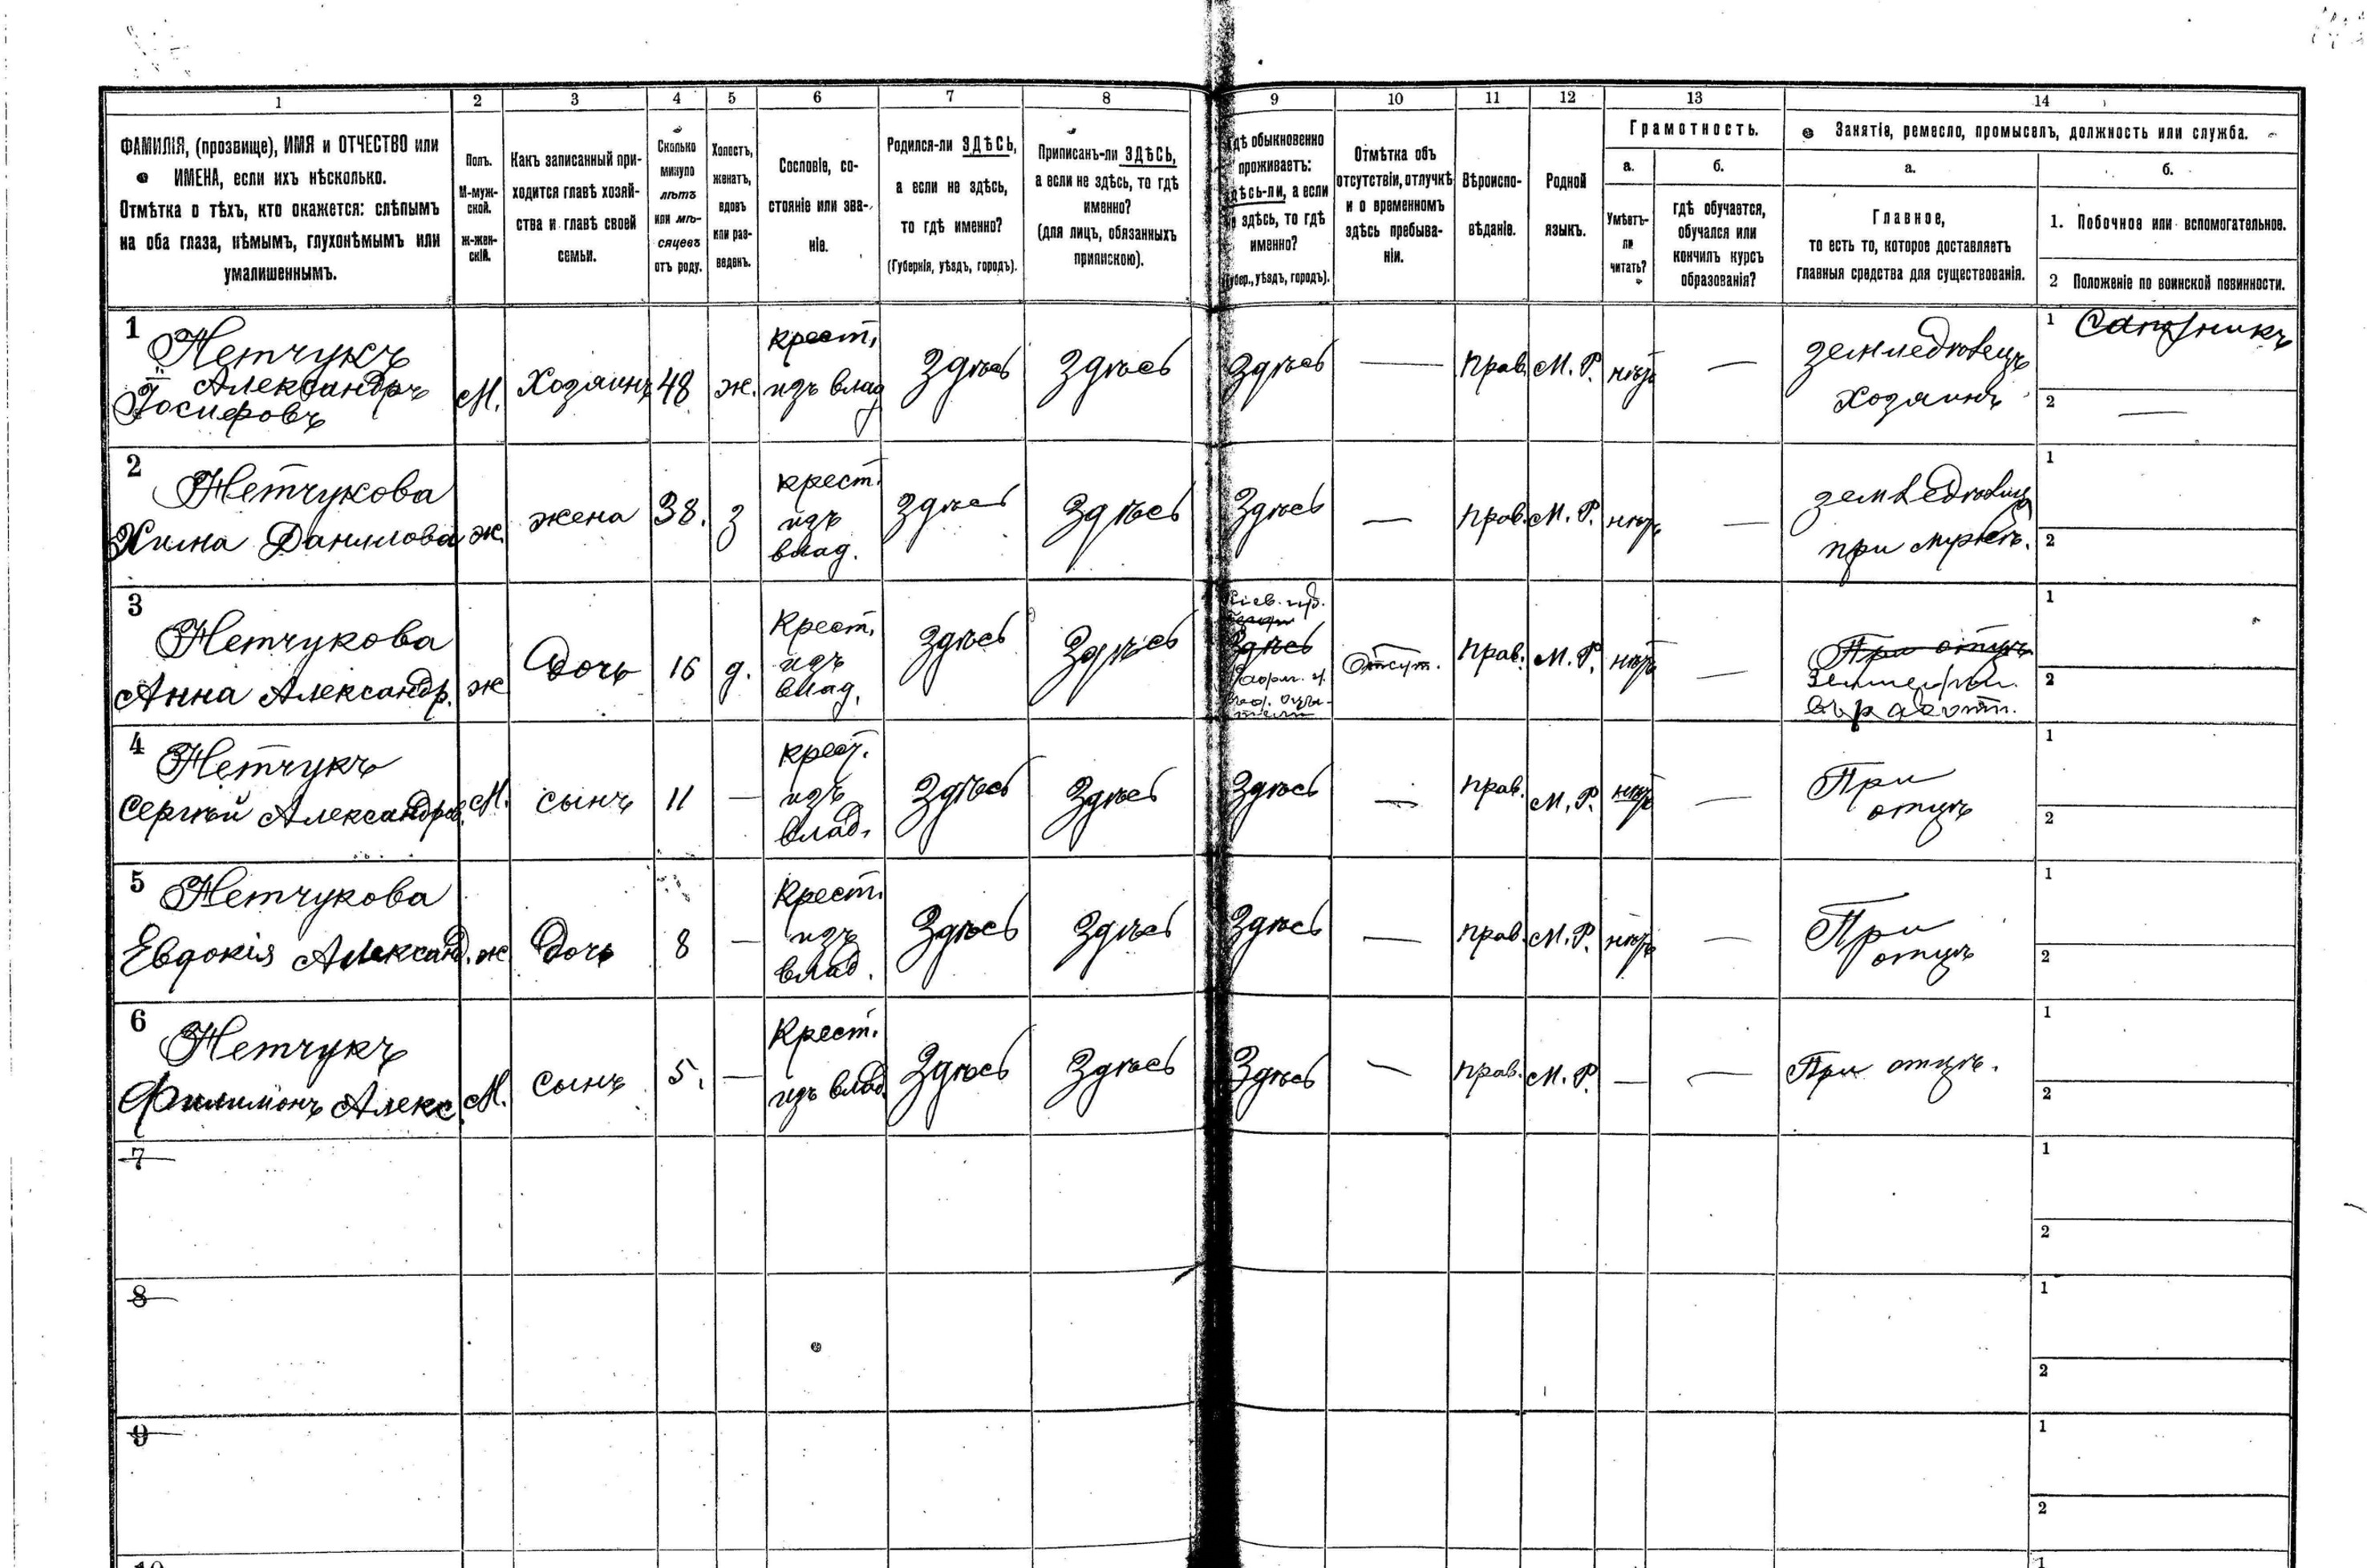 1 2 3 4 5 6 7 8 9 10 11 12 13 14
ФАМИЛІЯ, (прозвище), ИМЯ и ОТЧЕСТВО или
ИМЕНА, если ихъ нѣсколько.
Отмѣтка о тѣхъ, кто окажется: слѣпымъ
на оба глаза, нѣмымъ, глухонѣмымъ или
умалишеннымъ.
Полъ.
М-муж-
ской.
Ж-жен-
скій.
Какъ записанный при-
ходится главѣ хозяй-
ства и главѣ своей
семьи.
Сколько
минуло
лѣтъ
или мѣ-
сяцевъ
отъ роду.
Холостъ,
женатъ,
вдовъ
или раз-
веденъ.
Сословіе, со-
стояніе или зва-
ніе.
Родился-ли ЗДѢСЬ,
а если не здѣсь,
то гдѣ именно?
(Губернія, уѣздъ, городъ).
Приписанъ-ли ЗДѢСЬ,
а если не здѣсь, то гдѣ
именно?
(для лицъ, обязанныхъ
припискою).
гдѣ обыкновенно
проживаетъ:
здѣсь-ли, а если
не здѣсь, то гдѣ
именно?
(Губер., уѣздъ, городъ).
Отмѣтка объ
отсутствіи, отлучкѣ
и о временномъ
здѣсь пребыва-
ніи.
Вѣроиспо-
вѣданіе.
Родной
языкъ.
Грамотность.
а.
Умѣетъ-
ли
читать?
б.
гдѣ обучается,
обучался или
кончилъ курсъ
образованія?
Занятіе, ремесло, промыселъ, должность или служба.
а.
Главное,
то есть то, которое доставляетъ
главныя средства для существованія.
б.
1. Побочное или вспомогательное.
2 Положеніе по воинской повинности.
1
Нетчукъ
Александръ
Іосифовъ
М. Хозяинъ 48 ж.
крест.
изъ влад
Здѣсь Здѣсь Здѣсь — Прав. М. Р. нѣтъ —
земледѣлецъ
хозяинъ
1 Сапожникъ
2 —
2
Нетчукова
Данилова
ж. жена 38. з
крест.
изъ
влад.
Здѣсь Здѣсь Здѣсь — Прав. М. Р. нѣтъ —
при мужѣ.
1
2
3
Нетчукова
Анна Александр.
ж Дочь 16 д.
Крест.
изъ
влад.
Здѣсь Здѣсь
Кіев. губ.
Здѣсь
Отсут. Прав. М. Р. нѣтъ —
При отцѣ
1
2
4
Нетчукъ
Сергѣй Александров.
М. сынъ 11 —
крест.
изъ
влад.
Здѣсь Здѣсь Здѣсь — Прав. М. Р. нѣтъ —
При
отцѣ
1
2
5
Нетчукова
Евдокія Александ.
ж Дочь 8 —
Крест.
изъ
влад.
Здѣсь Здѣсь Здѣсь — Прав. М. Р. нѣтъ —
При
отцѣ
1
2
6
Нетчукъ
Филимонъ Алекс.
М. сынъ 5. —
Крест.
изъ влад.
Здѣсь Здѣсь Здѣсь — Прав. М. Р. — —
При отцѣ.
1
2
7
1
2
8
1
2
9
1
2
10
1